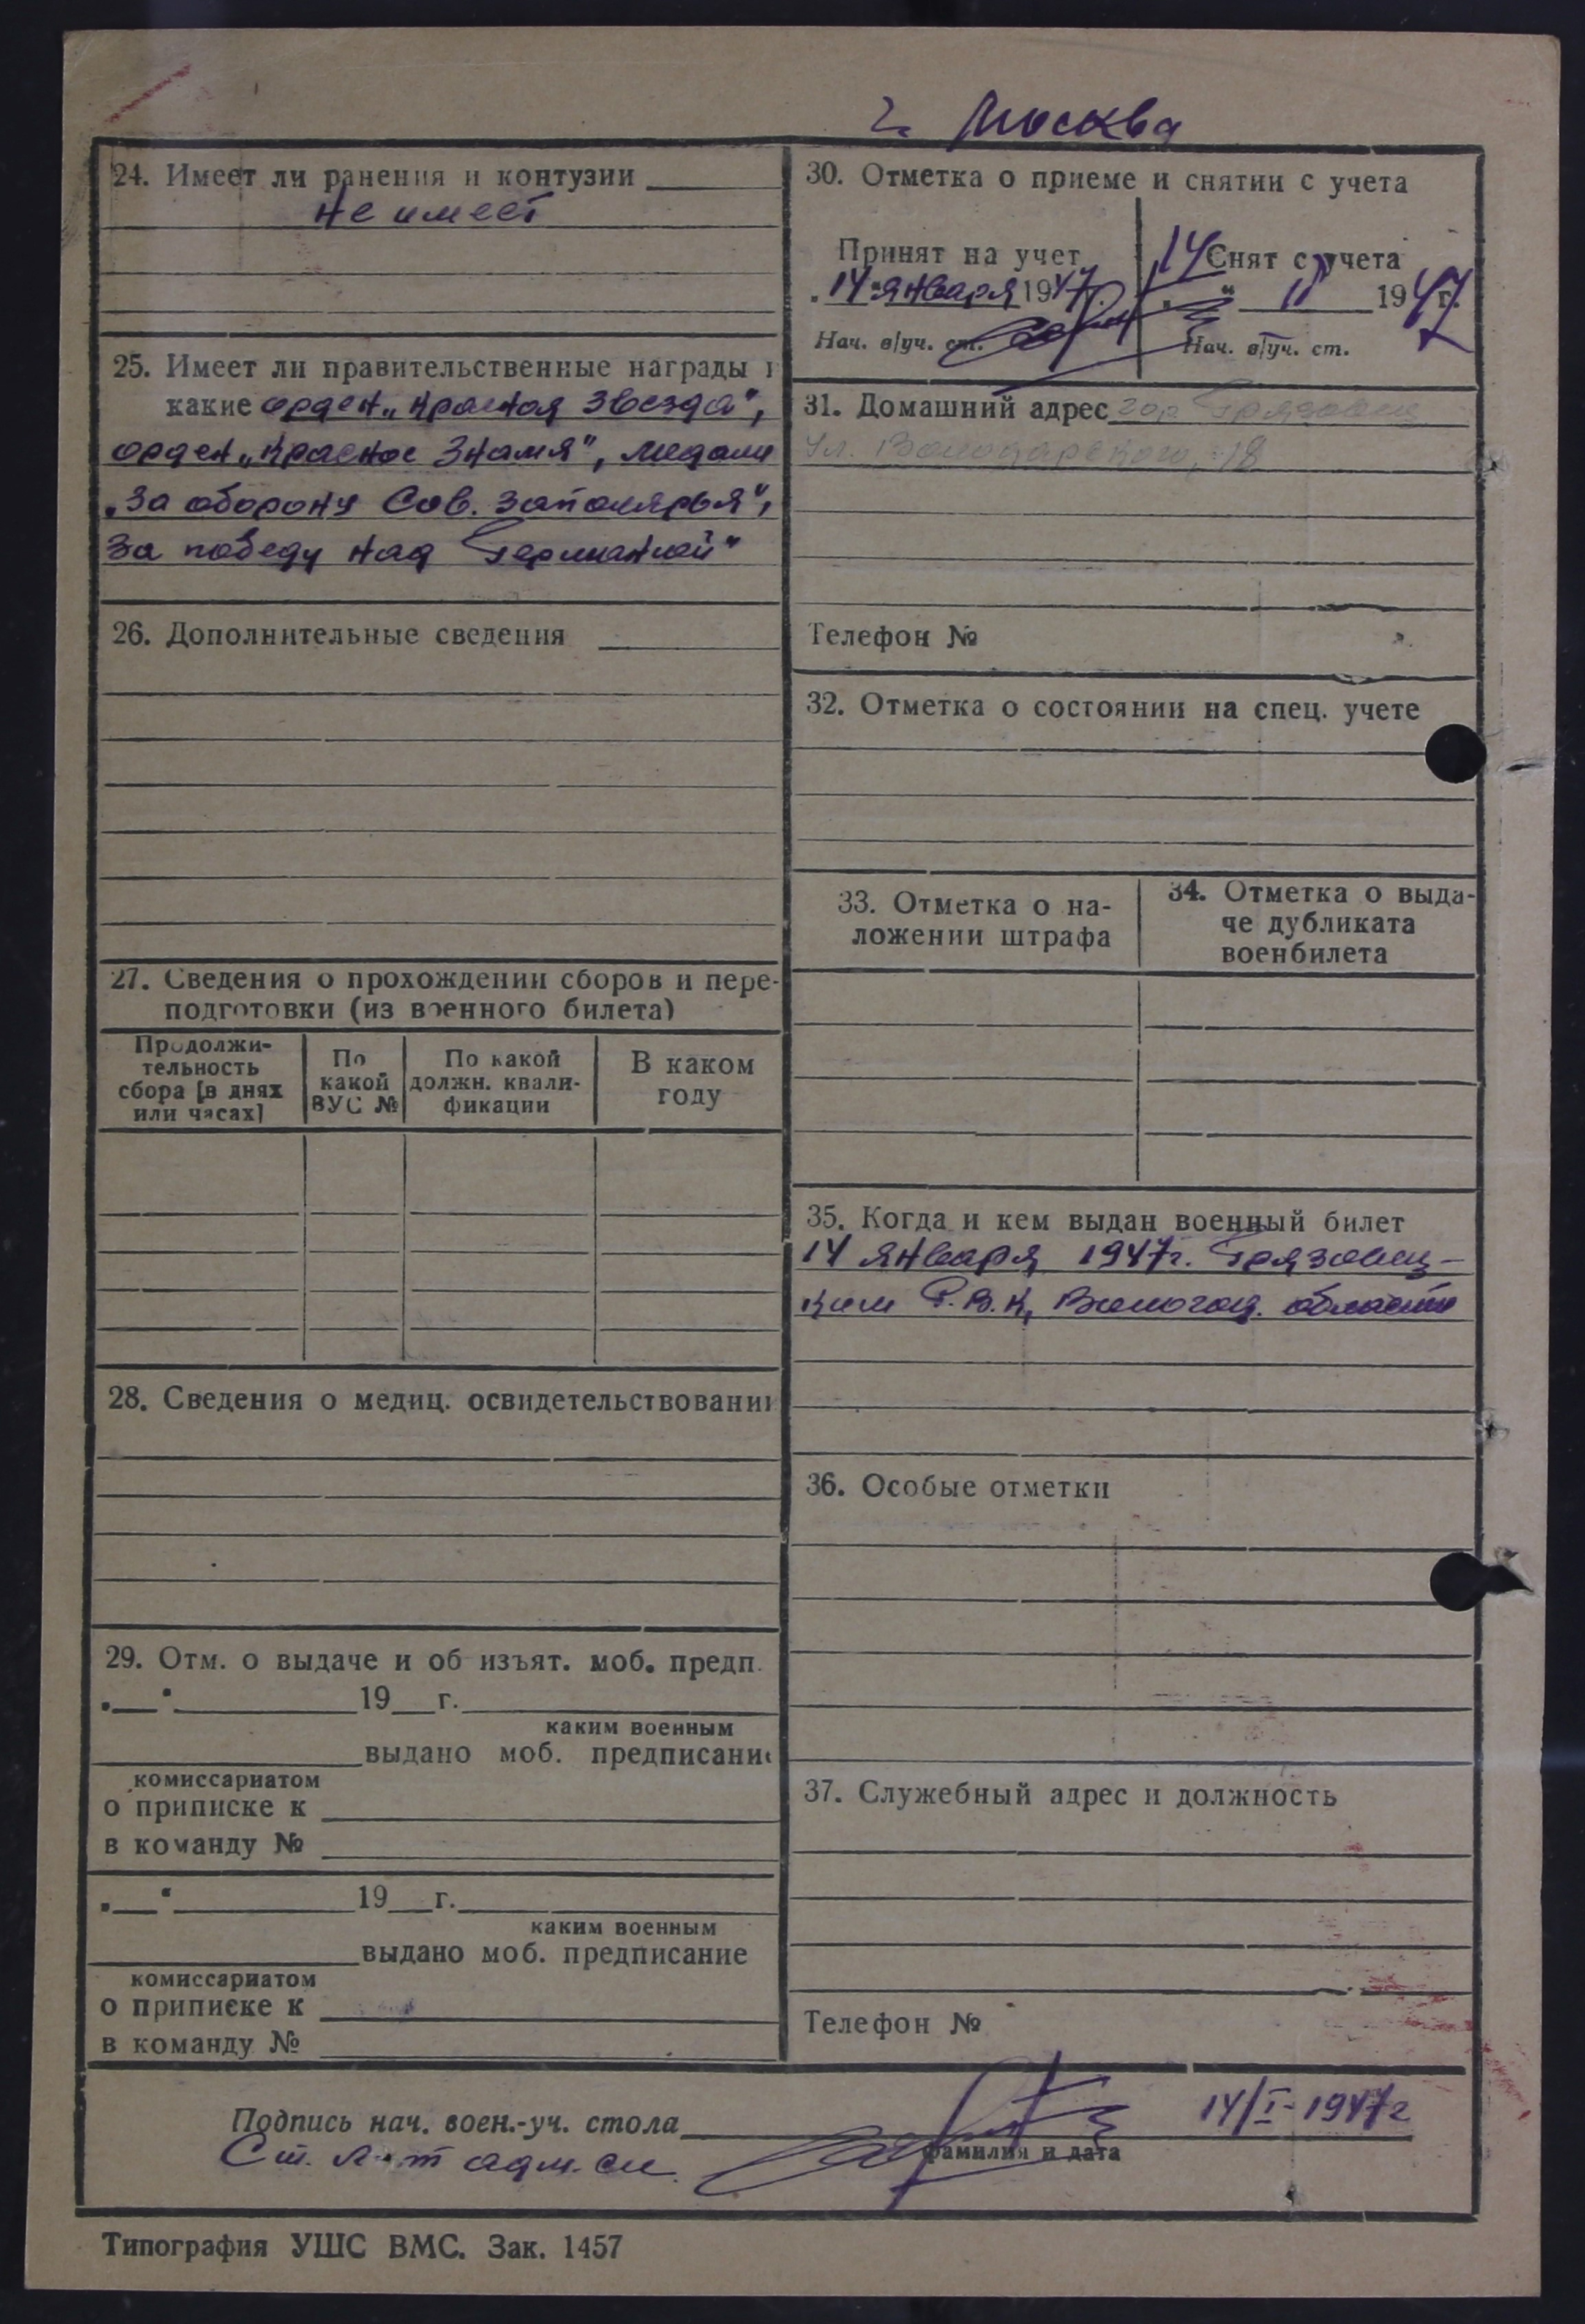 г. Москва
24. Имеет ли ранения и контузии
не имеет
25. Имеет ли правительственные награды и
какие орден „Красная Звезда",
орден „Красное Знамя", медали
„За оборону Сов. Заполярья",
За победу над Германией"
26. Дополнительные сведения
27. Сведения о прохождении сборов и пере-
подготовки (из военного билета)
Продолжи-
тельность
сбора [в днях
или часах]
По
какой
ВУС №
По какой
должн. квали-
фикации
В каком
году
28. Сведения о медиц. освидетельствовании
29. Отм. о выдаче и об изъят. моб. предп.
„__" ____ 19__г.
каким военным
выдано моб. предписание
комиссариатом
о приписке к
в команду №
„__" ____ 19__г.
каким военным
выдано моб. предписание
комиссариатом
о приписке к
в команду №
30. Отметка о приеме и снятии с учета
Принят на учет
„14" января 1947г.
Нач. в/уч. ст.
Снят с учета
14 " II 1947 г.
Нач. в/уч. ст.
31. Домашний адрес гор Грязовец
Ул. Володарского, 18
Телефон №
32. Отметка о состоянии на спец. учете
33. Отметка о на-
ложении штрафа
34. Отметка о выда-
че дубликата
военбилета
35. Когда и кем выдан военный билет
14 января 1947г. Грязовец-
ким Р.В.К, Вологод. области
36. Особые отметки
37. Служебный адрес и должность
Телефон №
Подпись нач. воен.-уч. стола
14/I-1947г
фамилия и дата
Ст. л-т адм. сл.
Типография УШС ВМС. Зак. 1457